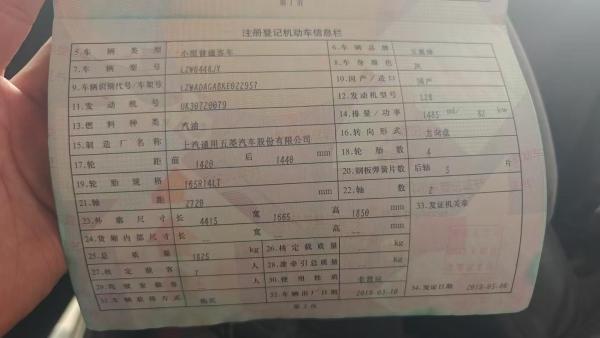 第1页
注册登记机动车信息栏
5.车辆类型 小型普通客车 6.车辆品牌 五菱牌
7.车辆型号 LZW6448JY 8.车身颜色 灰
9.车辆识别代号/车架号 10.国产/进口 国产
11.发动机号 UK30720079 12.发动机型号 L2B
13.燃料种类 汽油 14.排量/功率 1485 ml/ 82 kw
15.制造厂名称 上汽通用五菱汽车股份有限公司 16.转向形式 方向盘
17.轮距 前 1420 后 1440 mm 18.轮胎数 4
19.轮胎规格 165R14LT 20.钢板弹簧片数 后轴 5 片
21.轴距 2720 mm 22.轴数 2
23.外廓尺寸 长 4415 宽 1665 高 1850 mm 33.发证机关章
24.货厢内部尺寸 长 宽 高 mm
25.总质量 1825 kg 26.核定载质量 kg
27.核定载客 7 人 28.准牵引总质量 kg
29.驾驶室载客 人 30.使用性质 非营运
31.车辆获得方式 购买 32.车辆出厂日期 2018-03-10 34.发证日期
第2页